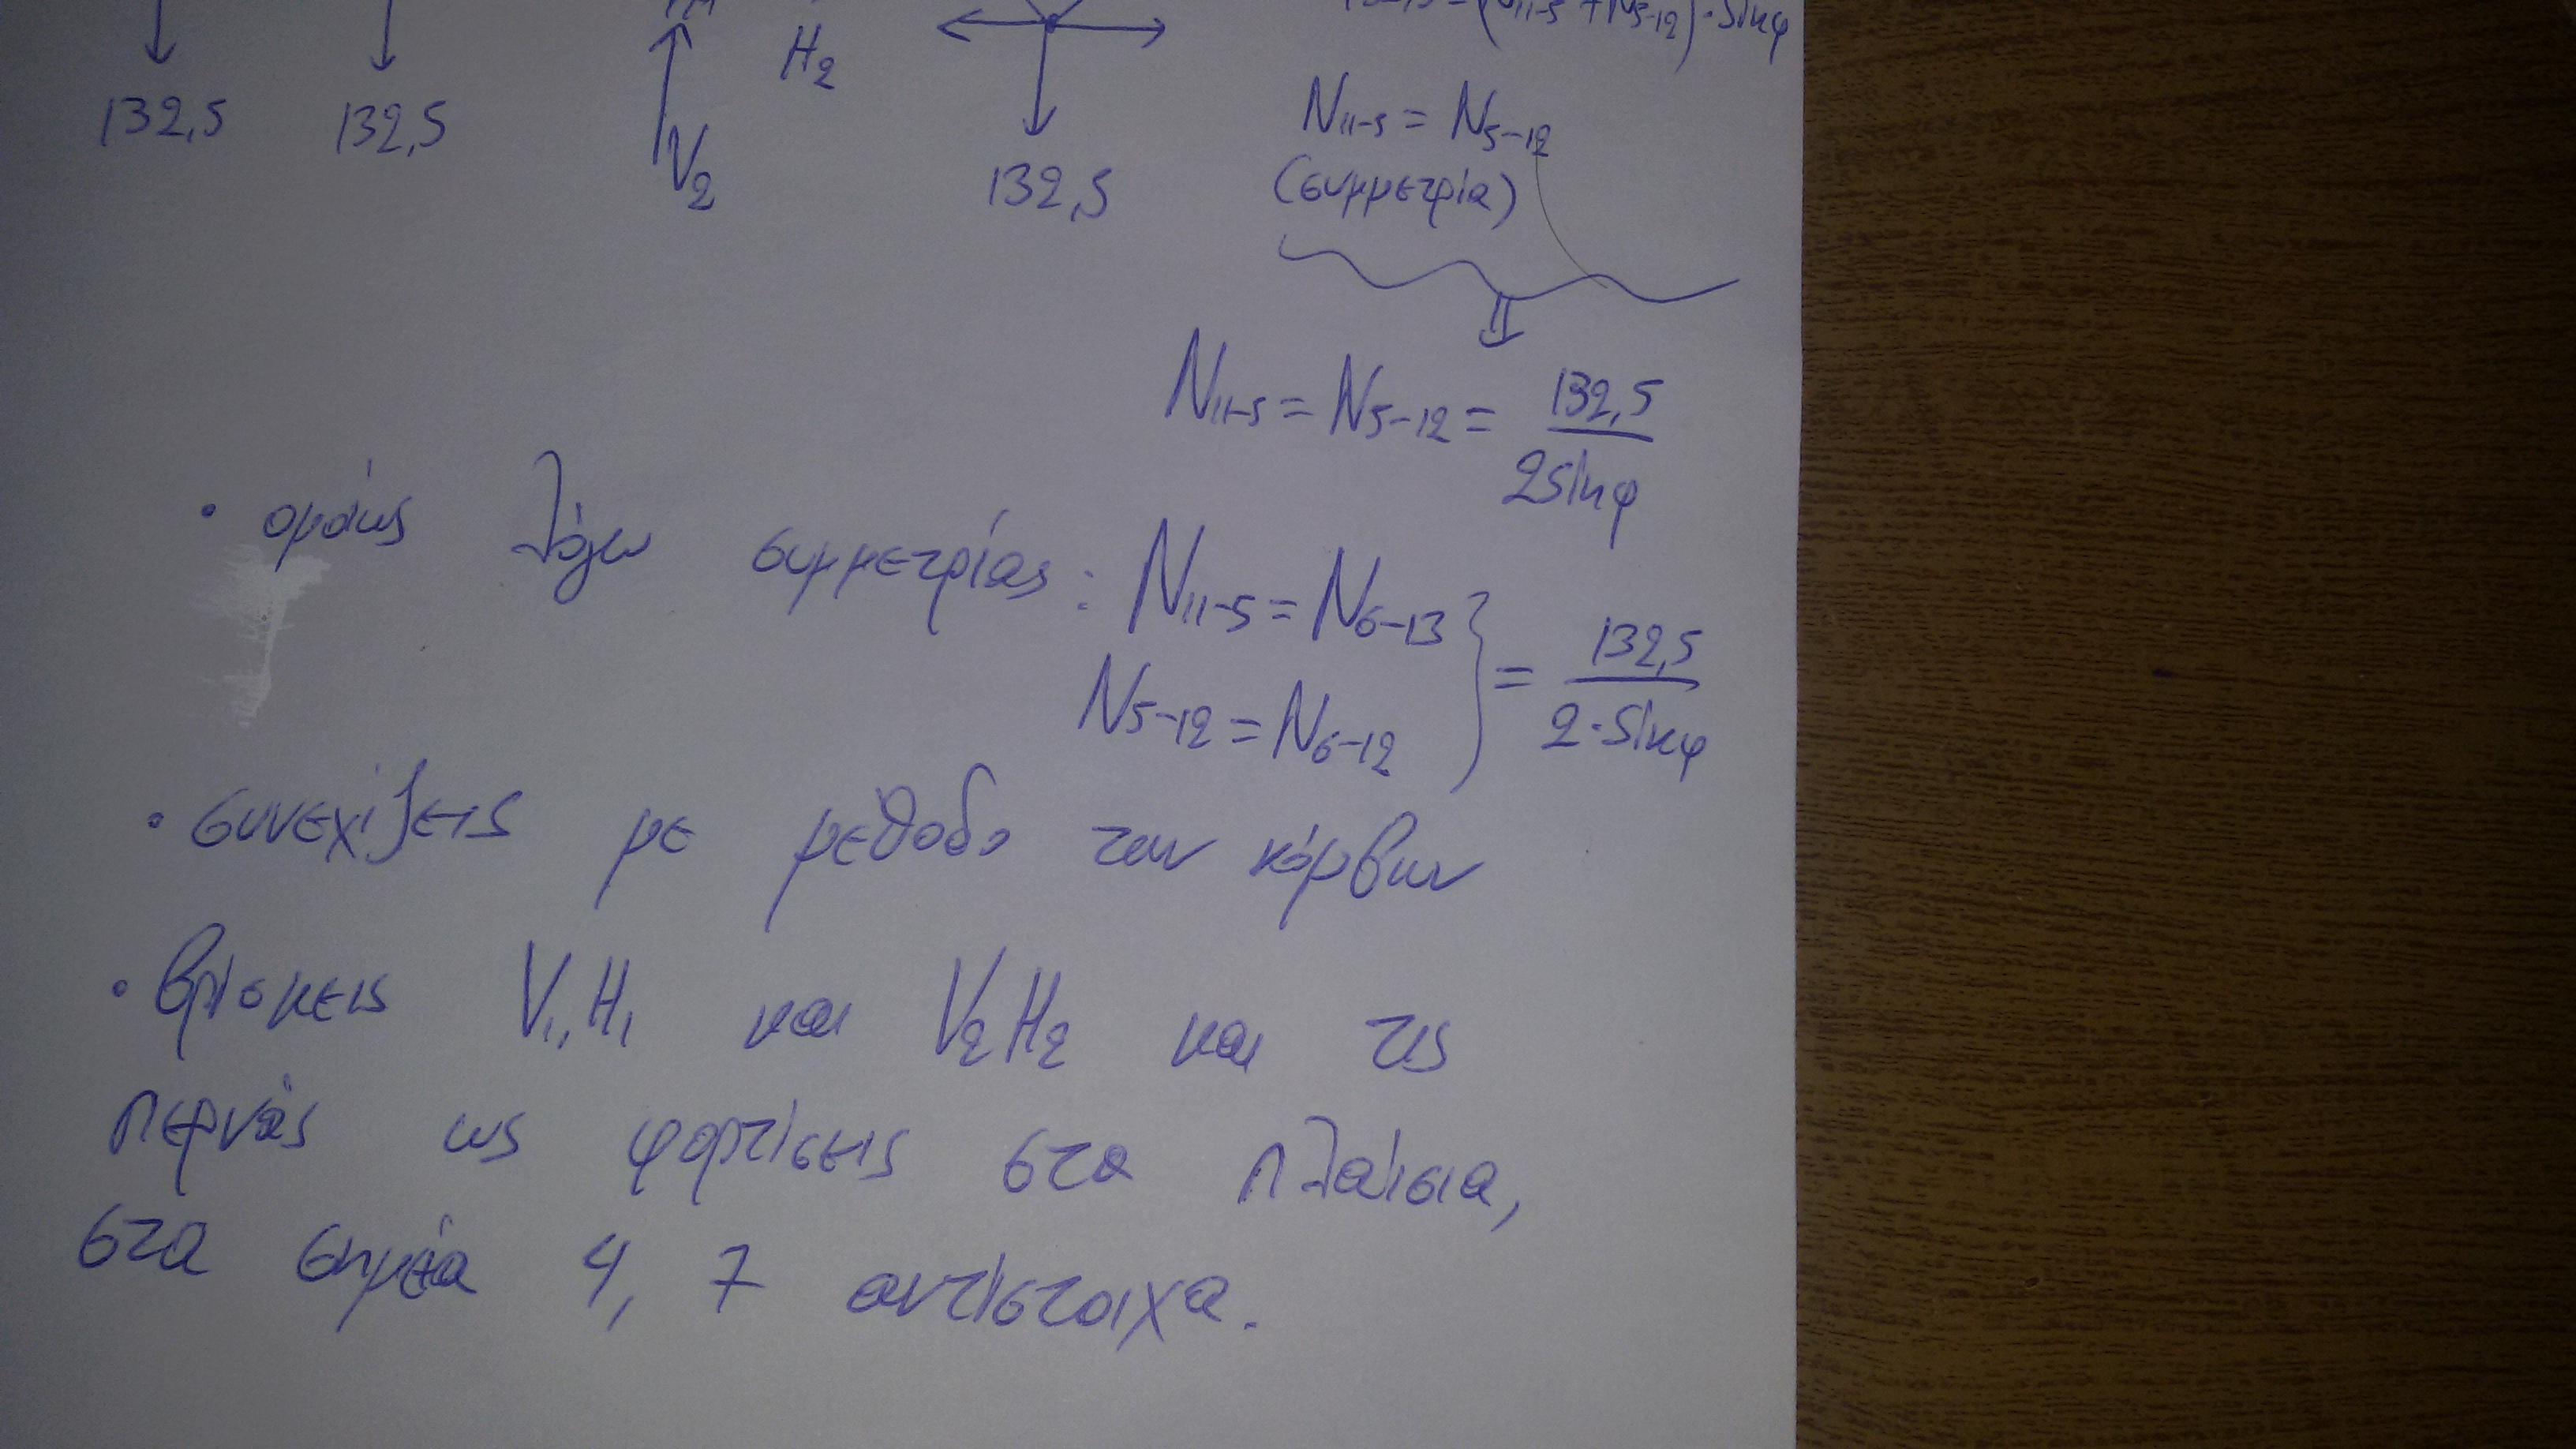 H₂
132,5 132,5
V₂
132,5
N₁₁₋₅ = N₅₋₁₂
(συμμετρία)
N₁₁₋₅ = N₅₋₁₂ = 132,5 / 2sinφ
• ομοίως λόγω συμμετρίας : N₁₁₋₅ = N₆₋₁₃
N₅₋₁₂ = N₆₋₁₂ } = 132,5 / 2·sinφ
• συνεχίζεις με μέθοδο των κόμβων
• βρίσκεις V₁,H₁ και V₂H₂ και τις
περνάς ως φορτίσεις στα πλαίσια,
στα σημεία 4, 7 αντίστοιχα.